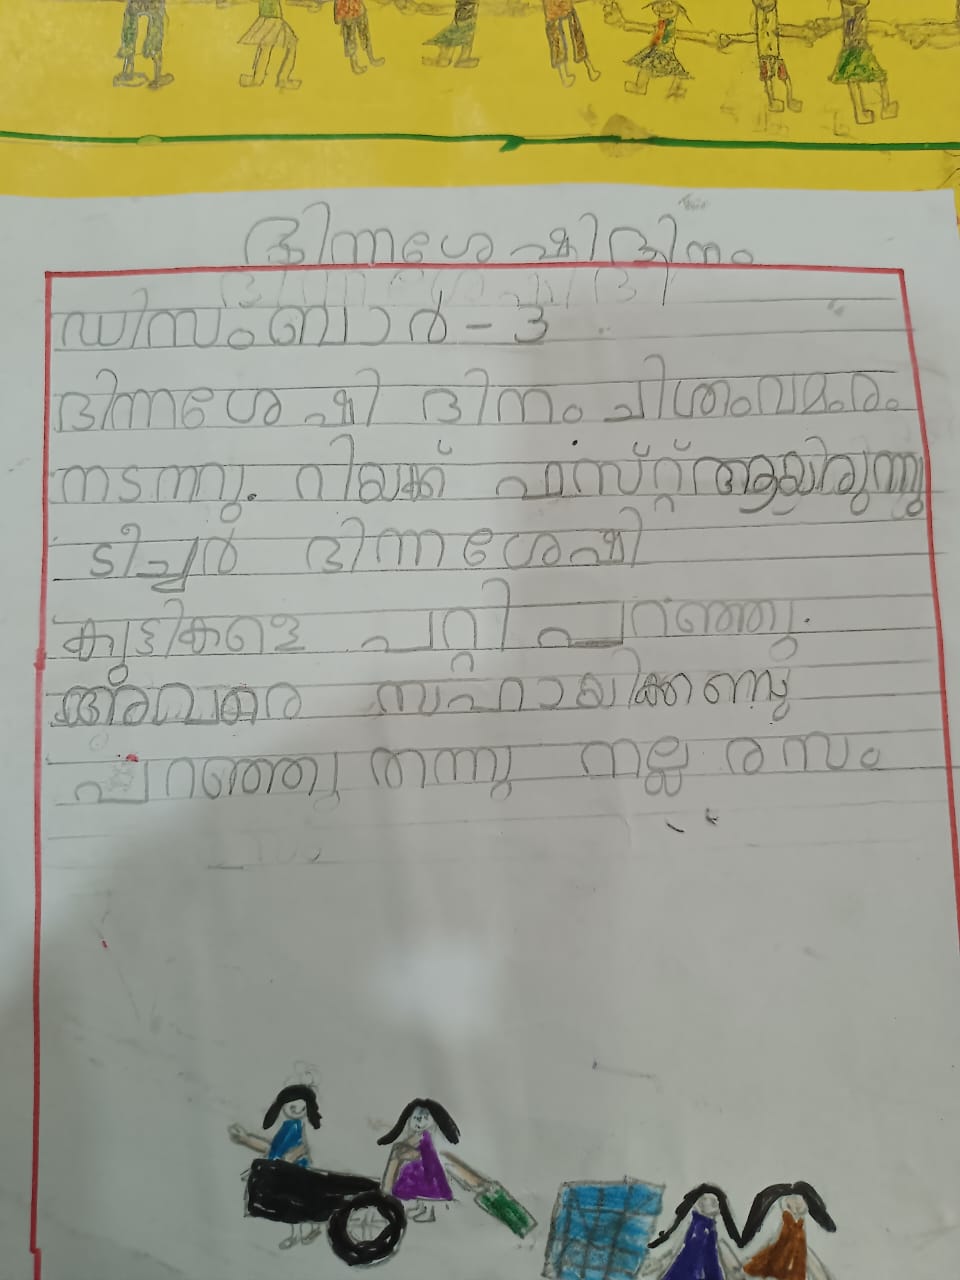 ഭിന്നശേഷിദിനം
ഡിസംബാർ - 3
ഭിന്നശേഷി ദിനം ചിത്രംവമരം
നടന്നു. നിയക്ക് ഫസ്റ്റ് ആയിരുന്നു
ടീച്ചർ ഭിന്നശേഷി
കുട്ടികളെ പറ്റി പറഞ്ഞു.
അവരെ സഹായിക്കണന്നു
പറഞ്ഞു തന്നു നല്ല രസം